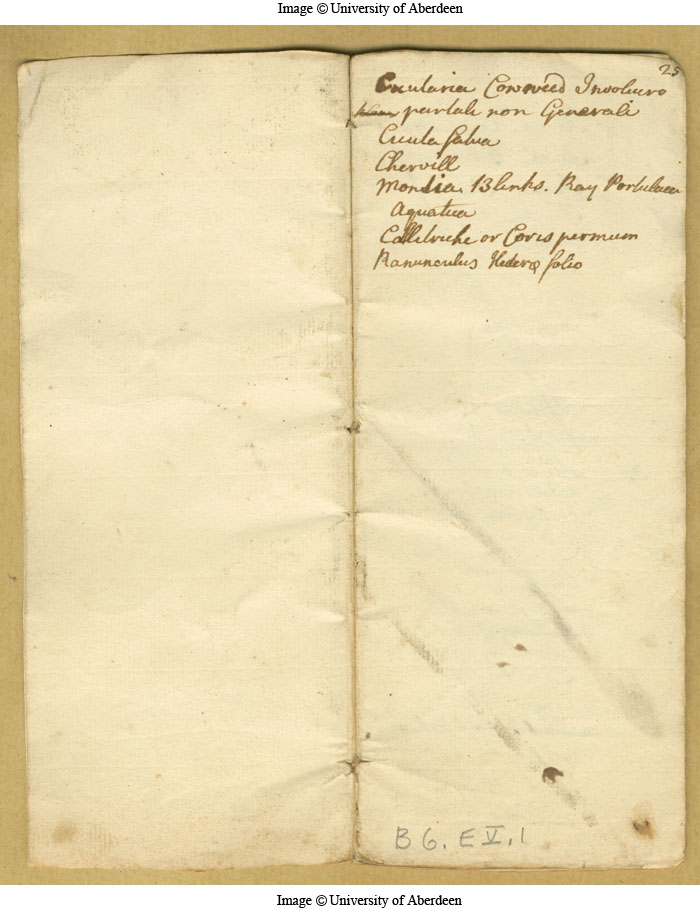 Image © University of Aberdeen
25
Cicutaria Cowweed Involucro
partiali non Generali
Cicuta falsa
Chervill
Montia. Blinks. Ray Portulaca
Aquatica
Callitriche or Corispermum
Ranunculus Hederæ folio
B 6. E V. 1
Image © University of Aberdeen